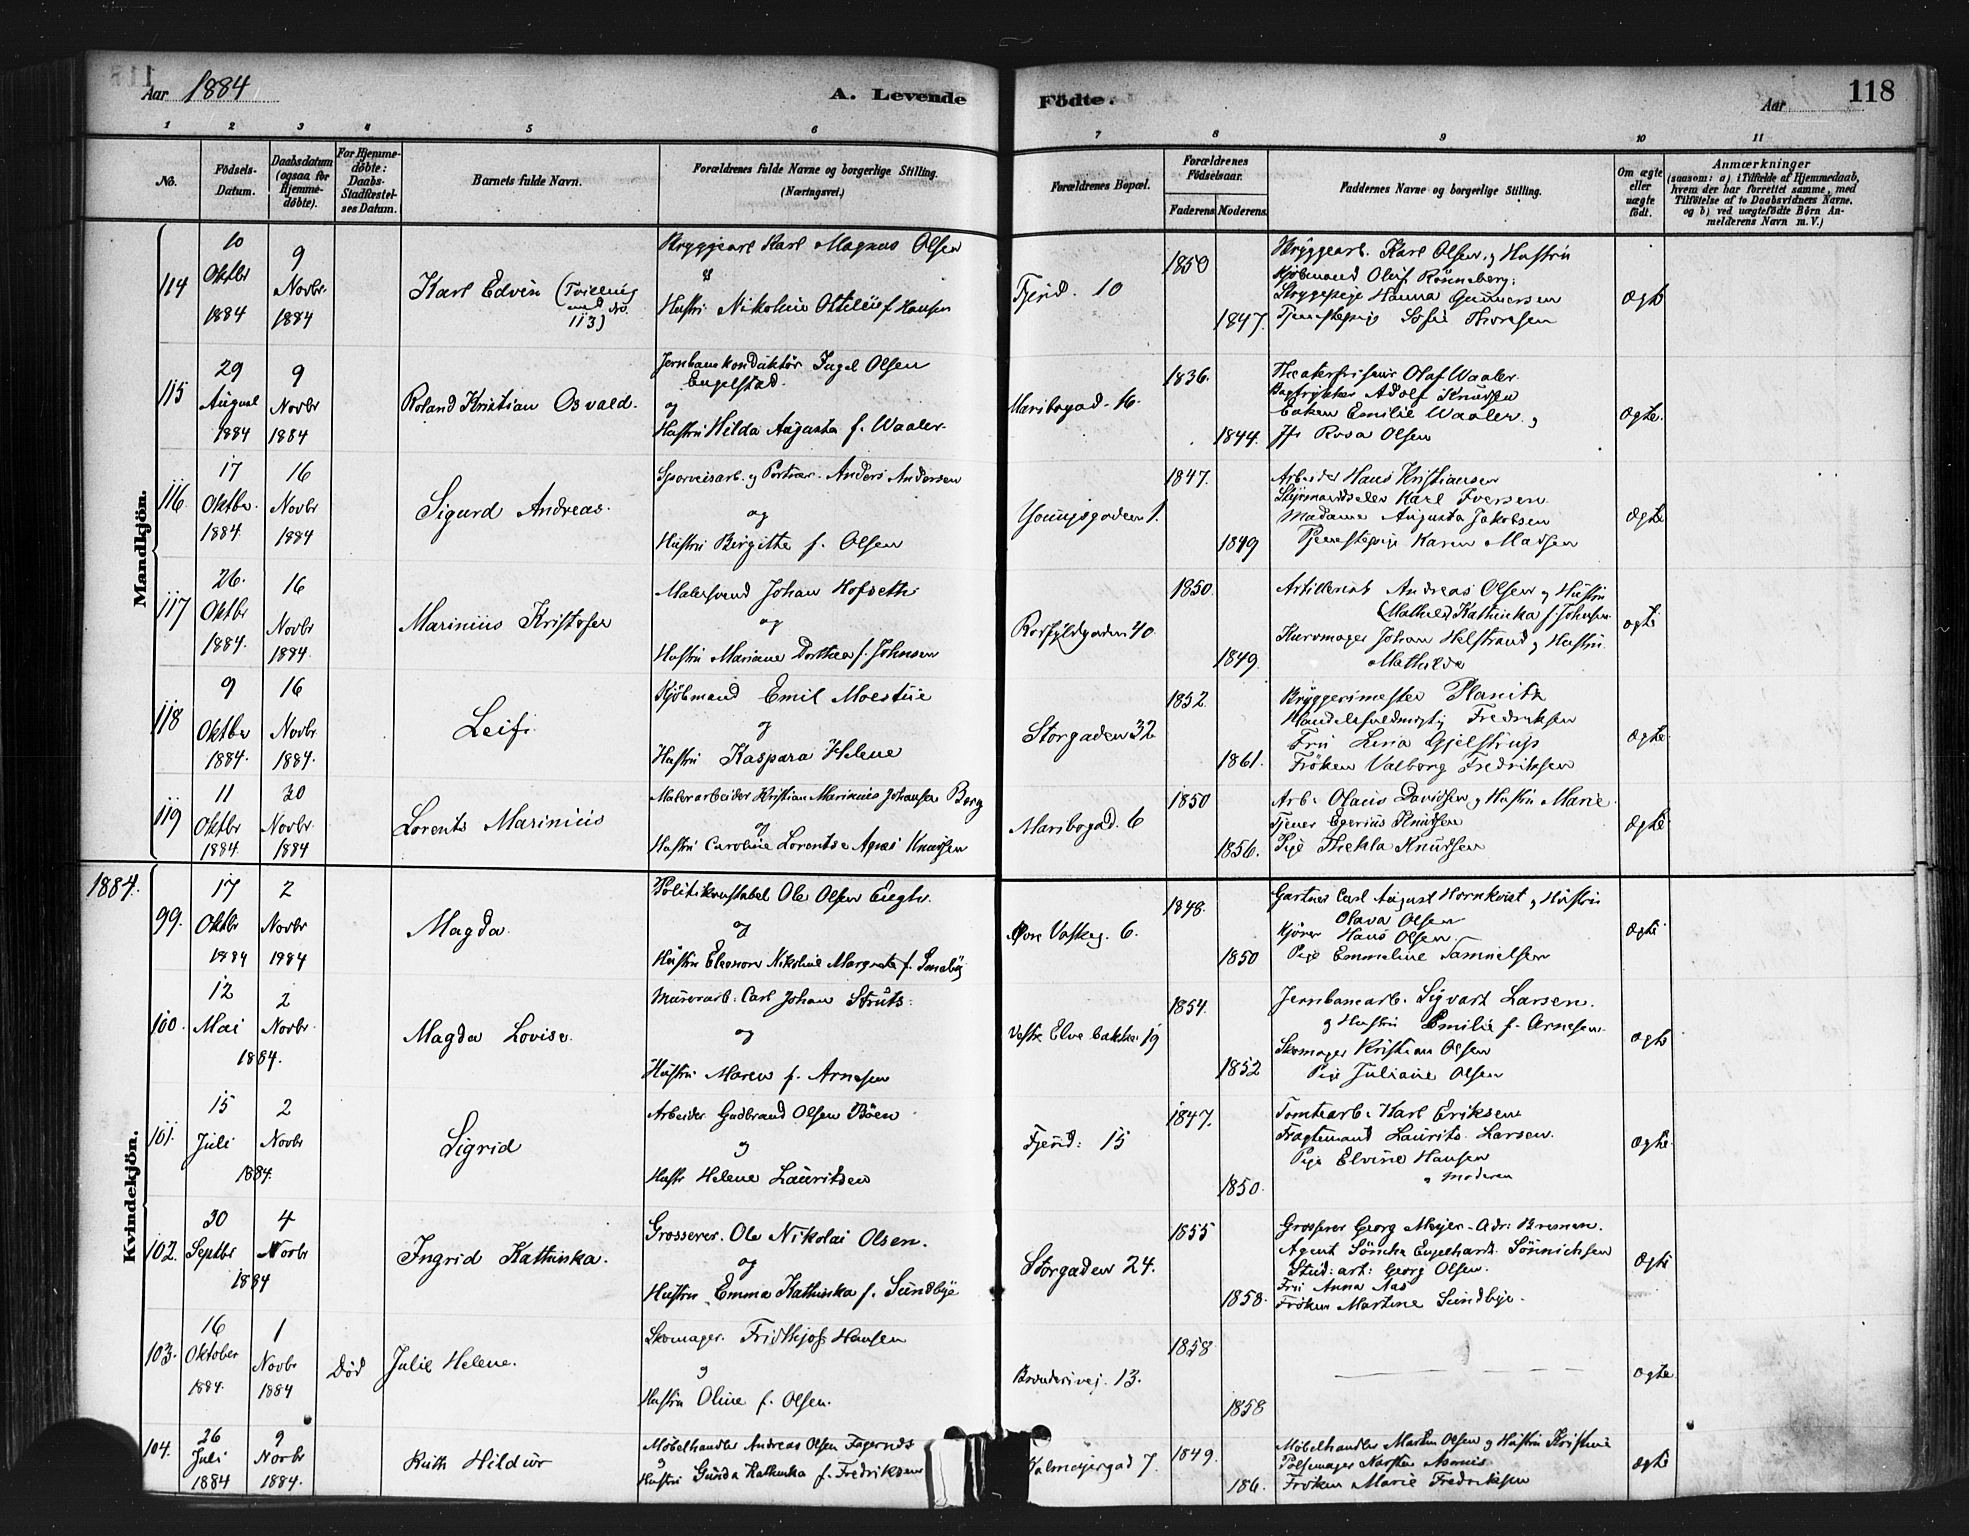 Aar 1884
A. Levende
Födte.
Aar
118
1 2 3 4 5 6 7 8 9 10 11
No.
Födsels-
Datum.
Daabsdatum
(ogsaa for
Hjemme-
døbte).
For Hjemme-
døbte:
Daabs-
Stadfæstel-
ses Datum.
Barnets fulde Navn.
Forældrenes fulde Navne og borgerlige Stilling.
(Næringsvei.)
Forældrenes Bopæl.
Forældrenes
Födselsaar.
Faderens Moderens
Faddernes Navne og borgerlige Stilling.
Om ægte
eller
uægte
födt.
Anmærkninger
(saasom: a) i Tilfælde af Hjemmedaab,
hvem der har forrettet samme, med
Tilföielse af to Daabsvidners Navne,
og b) ved uægtefödte Börn An-
melderens Navn m. V.)
Mandkjön.
114
10
Oktbr
1884
9
Novbr.
1884
Karl Edvin (Tvilling
med No.
113)
Bryggearb Karl Magnus Olsen
&
Hustru Nikoline Ottilie f. Hansen
Fjerd. 10
1850
1847.
Bryggearb. Karl Olsen og Hustru
Kjöbmand Oluf Rönneberg;
Strygepige Hanna Gunnersen
Tjenestepige Sofie Thoresen
ægte
115
29
August
1884
9
Novbr
1884
Roland Kristian Osvald.
Jernbanekonduktör Ingel Olsen
Engelstad.
og
Hustru Hilda Augusta f. Waaler.
Maribogad. 16.
1836.
1844.
Theaterfriseur Olaf Waaler.
Bogtrykker Adolf Knudsen
Enken Emilie Waaler og
Jfr Rosa Olsen
ægte.
116
17
Oktbr.
1884.
16
Novbr
1884
Sigurd Andreas.
Sporveisarb. og Portner. Anders Andersen
og
Hustru Birgitte f. Olsen
Youngsgaden 1.
1847.
1849
Arbeider Hans Kristiansen
Styrmandselev Karl Iversen
Madame Augusta Jakobsen
Tjenestepige Karen Madsen
ægte
117
26.
Oktbr
1884.
16
Novbr
1884.
Marinius Kristofer
Malersvend Johan Hofseth
og
Hustru Mariane Dorthea f. Johnsen
Rosfyldgaden 40.
1850.
1849.
Artillerist Andreas Olsen og Hustru
(Mathilde Kathinka f Johnsen
Kurvmager Johan Helstrand og Hustru
Mathilde
ægte
118
9
Oktber
1884.
16
Novbr.
1884.
Leif.
Kjöbmand Emil Moestue
og
Hustru Kaspara Helene
Storgaden 32
1852.
1861.
Bryggerimester Planitz
Handelsfuldmægtig Fredriksen
Fru Lina Gjelstrup
Fröken Valborg Fredriksen
ægte.
119
11
Oktbr
1884.
30
Novbr.
1884
Lorents Marinius
Malerarbeider Kristian Marinius Johansen Berg
og
Hustru Caroline Lorentse Agnes Knudsen
Maribogad. 6
1850
1856.
Arb. Olaus Davidsen og Hustru Marie
Tjener Egerius Knudsen
Pige Thekla Knudsen
ægte
1884.
Kvindekjön.
99.
17
Oktbr
1884
2
Novbr
1884
Magda.
Politikonstabel Ole Olsen Engh.
og
Hustru Eleonore Nikoline Margrete f.
Øvre Vaskeg. 6.
1848.
1850
Gartner Carl August Hornkvist og Hustru
Olava Olsen
Kjörer Hans Olsen
Pige Emmeline Samuelsen
ægte
100.
12
Mai
1884.
2
Novbr.
Magda Lovise.
Murerarb. Carl Johan Struts.
og
Hustru Maren f. Arnesen
Vestre Elvebakke 19
1854.
1852
Jernbanearb. Sigvart Larsen.
og Hustru Emilie f. Arnesen.
Skomager Kristian Olsen
Pige Juliane Olsen
ægte
101.
15
Juli
1884.
2
Novbr
Sigrid
Arbeider Gudbrand Olsen Böen
og
Hustr Helene Lauritsen
Fjerd: 15
1847.
1850.
Tomtearb. Karl Eriksen
Fragtemand Laurits Larsen.
Pige Elvine Hansen
og Moderen
ægte.
102.
30
Septbr
1884
4
Novbr
Ingrid Kathinka.
Grosserer. Ole Nikolai Olsen.
og
Hustru Emma Kathinka f. Sundbye
Storgaden 24.
1855
1858.
Grosserer Georg Meyer - Adr: Bremen.
Agent Söncke Engelhardt Sönnichsen
Stud: art: Georg Olsen.
Fru Anna Aas
Fröken Martine Sundbye.
ægte
103.
16
Oktober
1884.
1
Novbr
1884
Död
Julie Helene.
Skomager. Fridthjof Hansen
og
Hustru Oline f. Olsen.
Brænderivej. 13.
1858
1858
ægte
104.
26
Juli
1884
9
Novbr
1884.
Ruth Hildur
Møbelhandler Andreas Olsen Fagernes
og
Hustru Gunda Kathinka f. Fredriksen
Kalmeyergad 7.
1849.
186.
Møbelhandler Martin Olsen og Hustru Kristine
Pölsemager
Fröken Marie Fredriksen
ægte